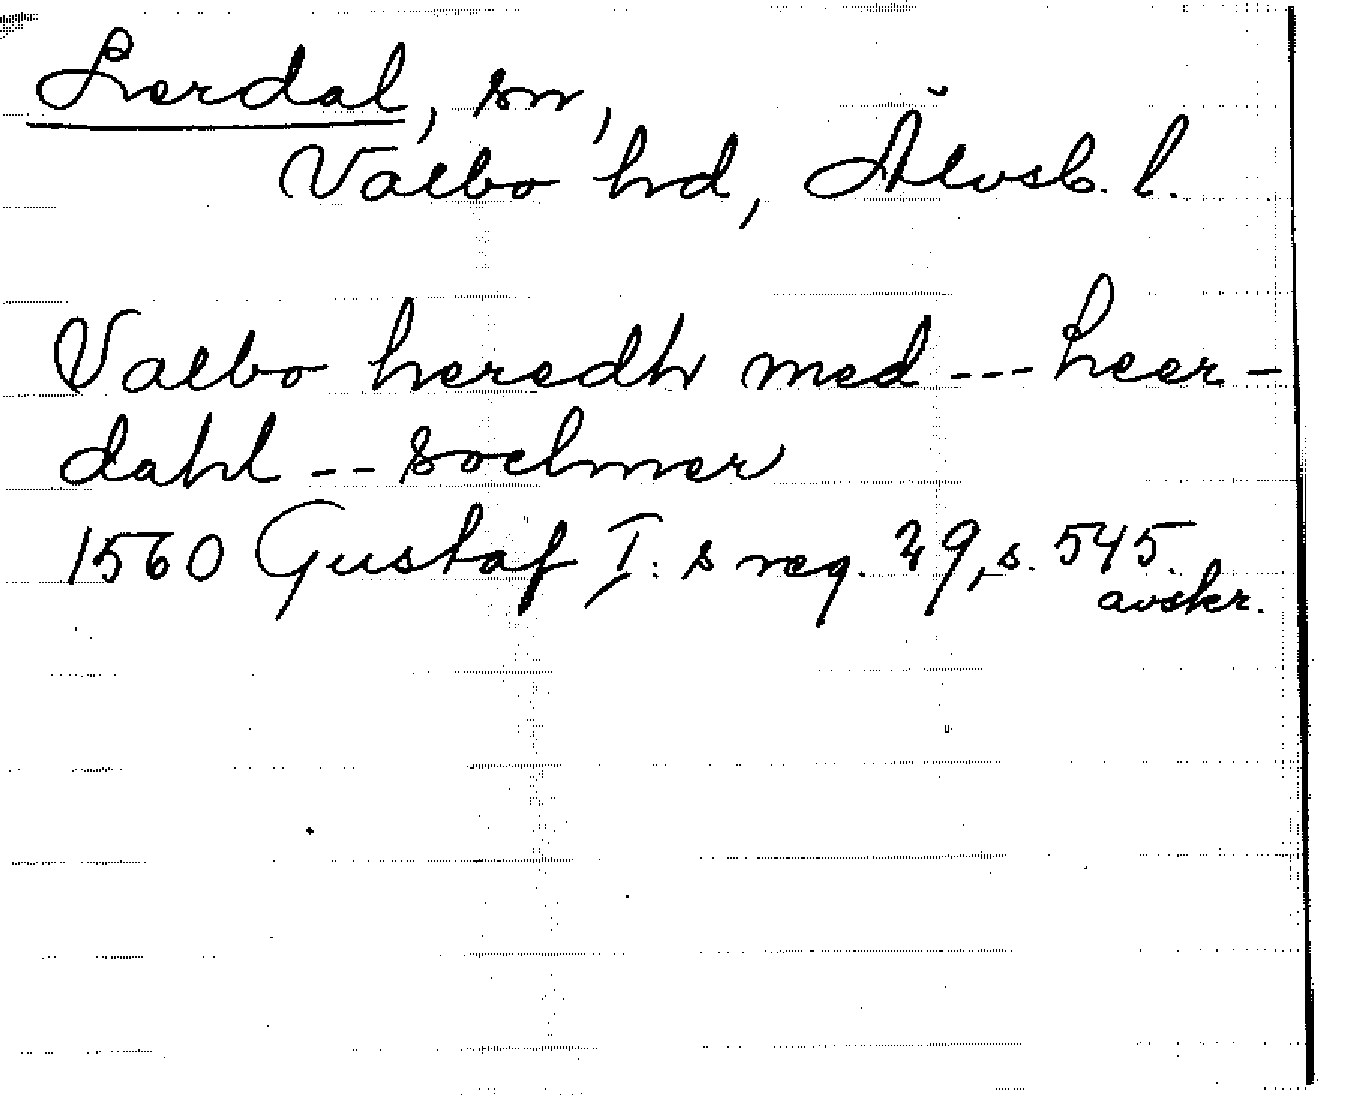 Lerdal, sn,
Valbo hd, Älvsb. l.
Valbo heredh med --- Leer-
dahl -- sochner
1560 Gustaf I:s reg. 29, s. 545.
avskr.